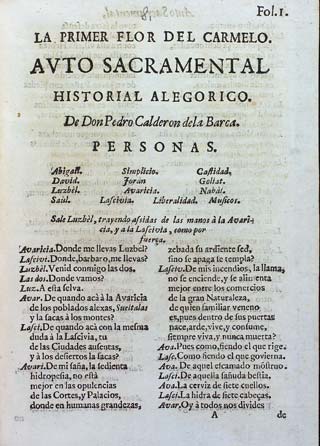 Fol. 1.
LA PRIMER FLOR DEL CARMELO.
AVTO SACRAMENTAL
HISTORIAL ALEGORICO.
De Don Pedro Calderon de la Barca.
PERSONAS.
Abigail. Simplicio. Castidad.
David. Jorán Goliat.
Luzbèl. Avaricia. Nabàl.
Saùl. Lascivia. Liberalidad. Musicos.
Sale Luzbèl, trayendo asidas de las manos à la Avari-
cia, y à la Lascivia, como por
fuerça.
Avaricia. Donde me llevas Luzbèl?
Lascivi. Donde, barbaro, me llevas?
Luzbèl. Venid conmigo las dos.
Las dos. Donde vamos?
Luz. A esta selva.
Avar. De quando acà à la Avaricia
de los poblados alexas,
y la sacas à los montes?
Lasci. De quando acà con la mesma
duda à la Lascivia, tu
de las Ciudades ausentas,
y à los desiertos la sacas?
Avari. De mi saña, la sedienta
hidropesia, no està
mejor en las opulencias
de las Cortes, y Palacios,
donde en humanas grandezas,
zebada su ardiente sed,
sino se apaga se templa?
Lasciv. De mis incendios, la llama,
no se enciende, y se alimenta
mejor entre los comercios
de la gran Naturaleza,
de quien familiar veneno
es, pues dentro de sus puertas
nace, arde, vive, y consume,
siempre viva, y nunca muerta?
Ava. Pues como, siendo el que rige.
Lasc. Como siendo el que govierna.
Ava. De aquel escamado mõstruo.
Lasc. De aquella sañuda bestia.
Ava. La cerviz de siete cuellos.
Lasci. La hidra de siete cabeças.
Avar. Oy à todos nos divides
A de